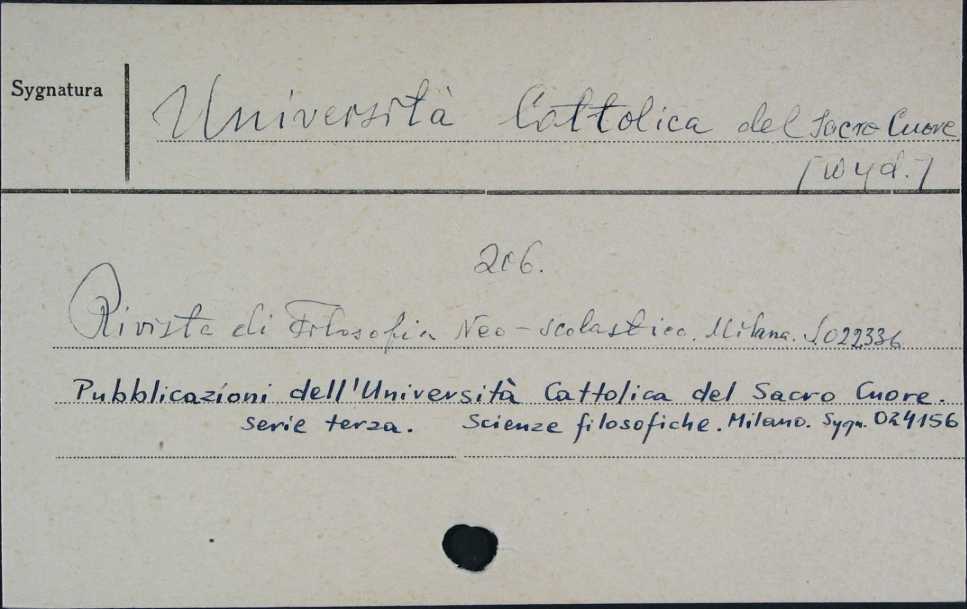 Sygnatura
Università Cattolica del Sacro Cuore
[wyd.]
206.
Rivista di Filosofia Neo-scolastica. Milana. S022336
Pubblicazioni dell'Università Cattolica del Sacro Cuore.
serie terza. Scienze filosofiche. Milano. Sygn. 024156